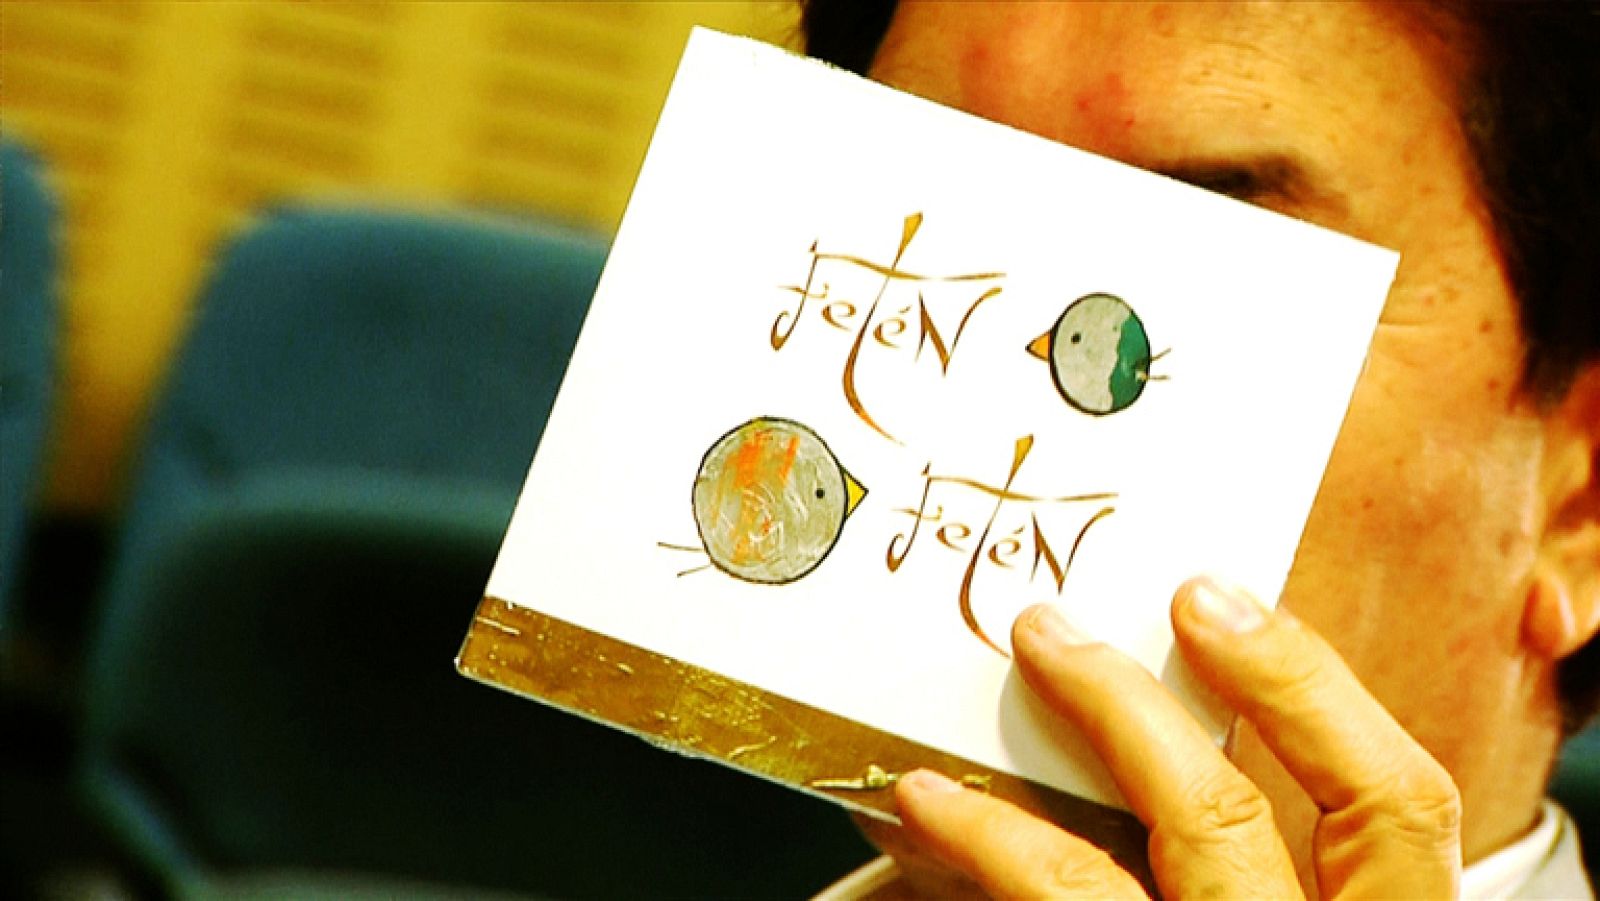 Jetén
Jetén